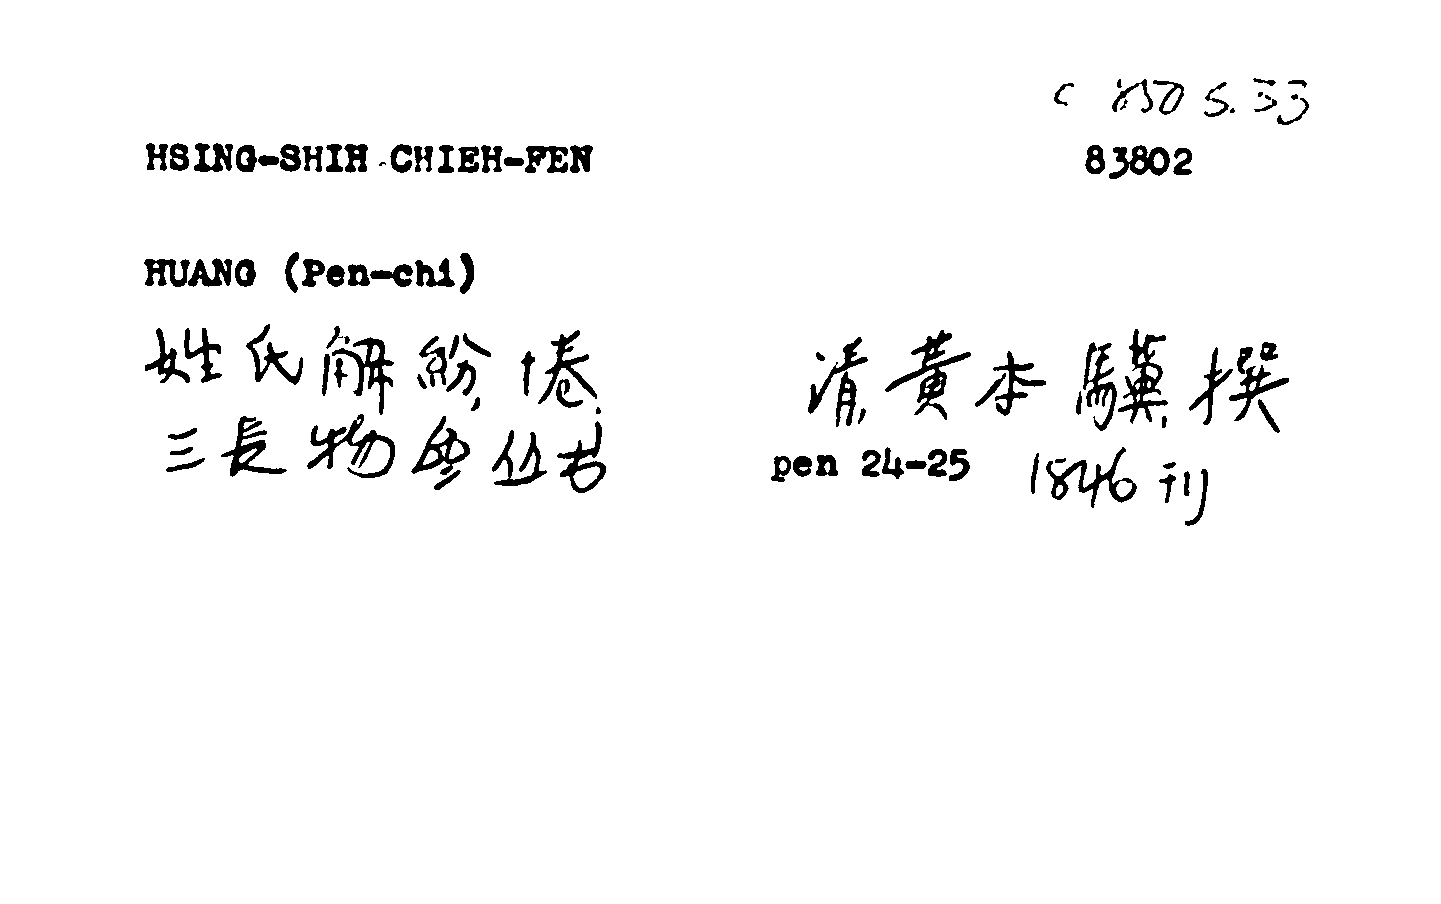 C 850 S.33
HSING-SHIH CHIEH-FEN 83802
HUANG (Pen-chi)
姓氏解紛, 十卷. 清, 黃本驥, 撰
三長物齋丛书 pen 24-25 1846刊